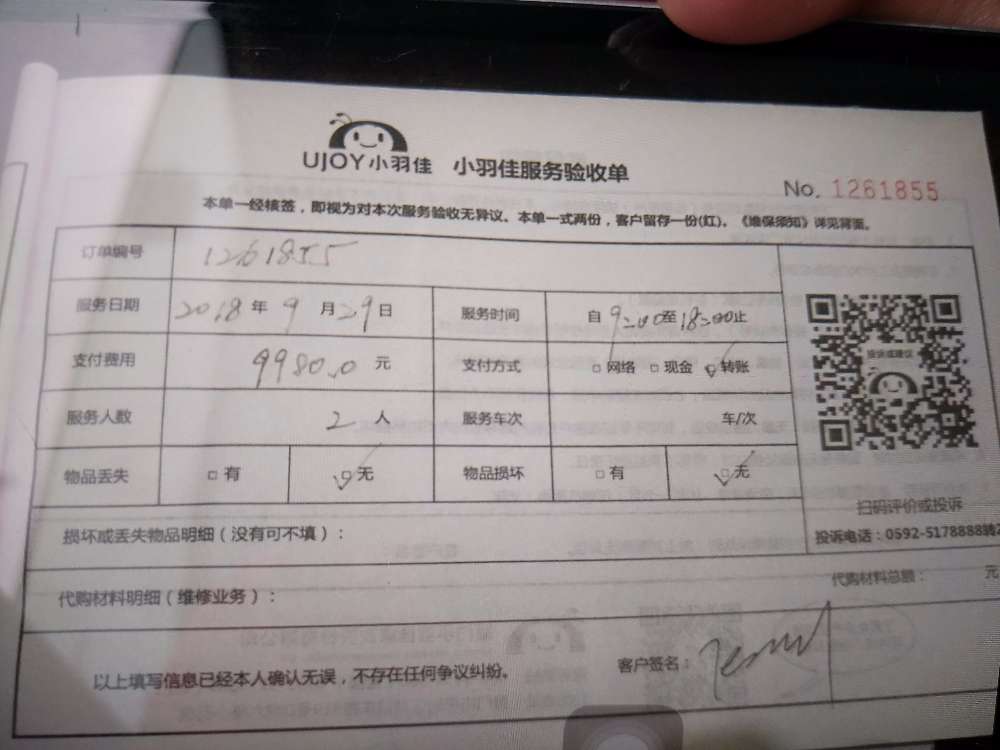 UJOY小羽佳 小羽佳服务验收单
No. 1261855
本单一经核签，即视为对本次服务验收无异议。本单一式两份，客户留存一份(红)。《维保须知》详见背面。
订单编号 1261855
服务日期 2018年9月29日 服务时间 自9:00至18:00止
支付费用 9980.0元 支付方式 □网络 □现金 ☑转账
服务人数 2人 服务车次 车/次
物品丢失 □有 ☑无 物品损坏 □有 ☑无
投诉或建议
扫码评价或投诉
投诉电话：0592-5178888转2
损坏或丢失物品明细（没有可不填）：
代购材料总额： 元
代购材料明细（维修业务）：
以上填写信息已经本人确认无误，不存在任何争议纠纷。
客户签名：